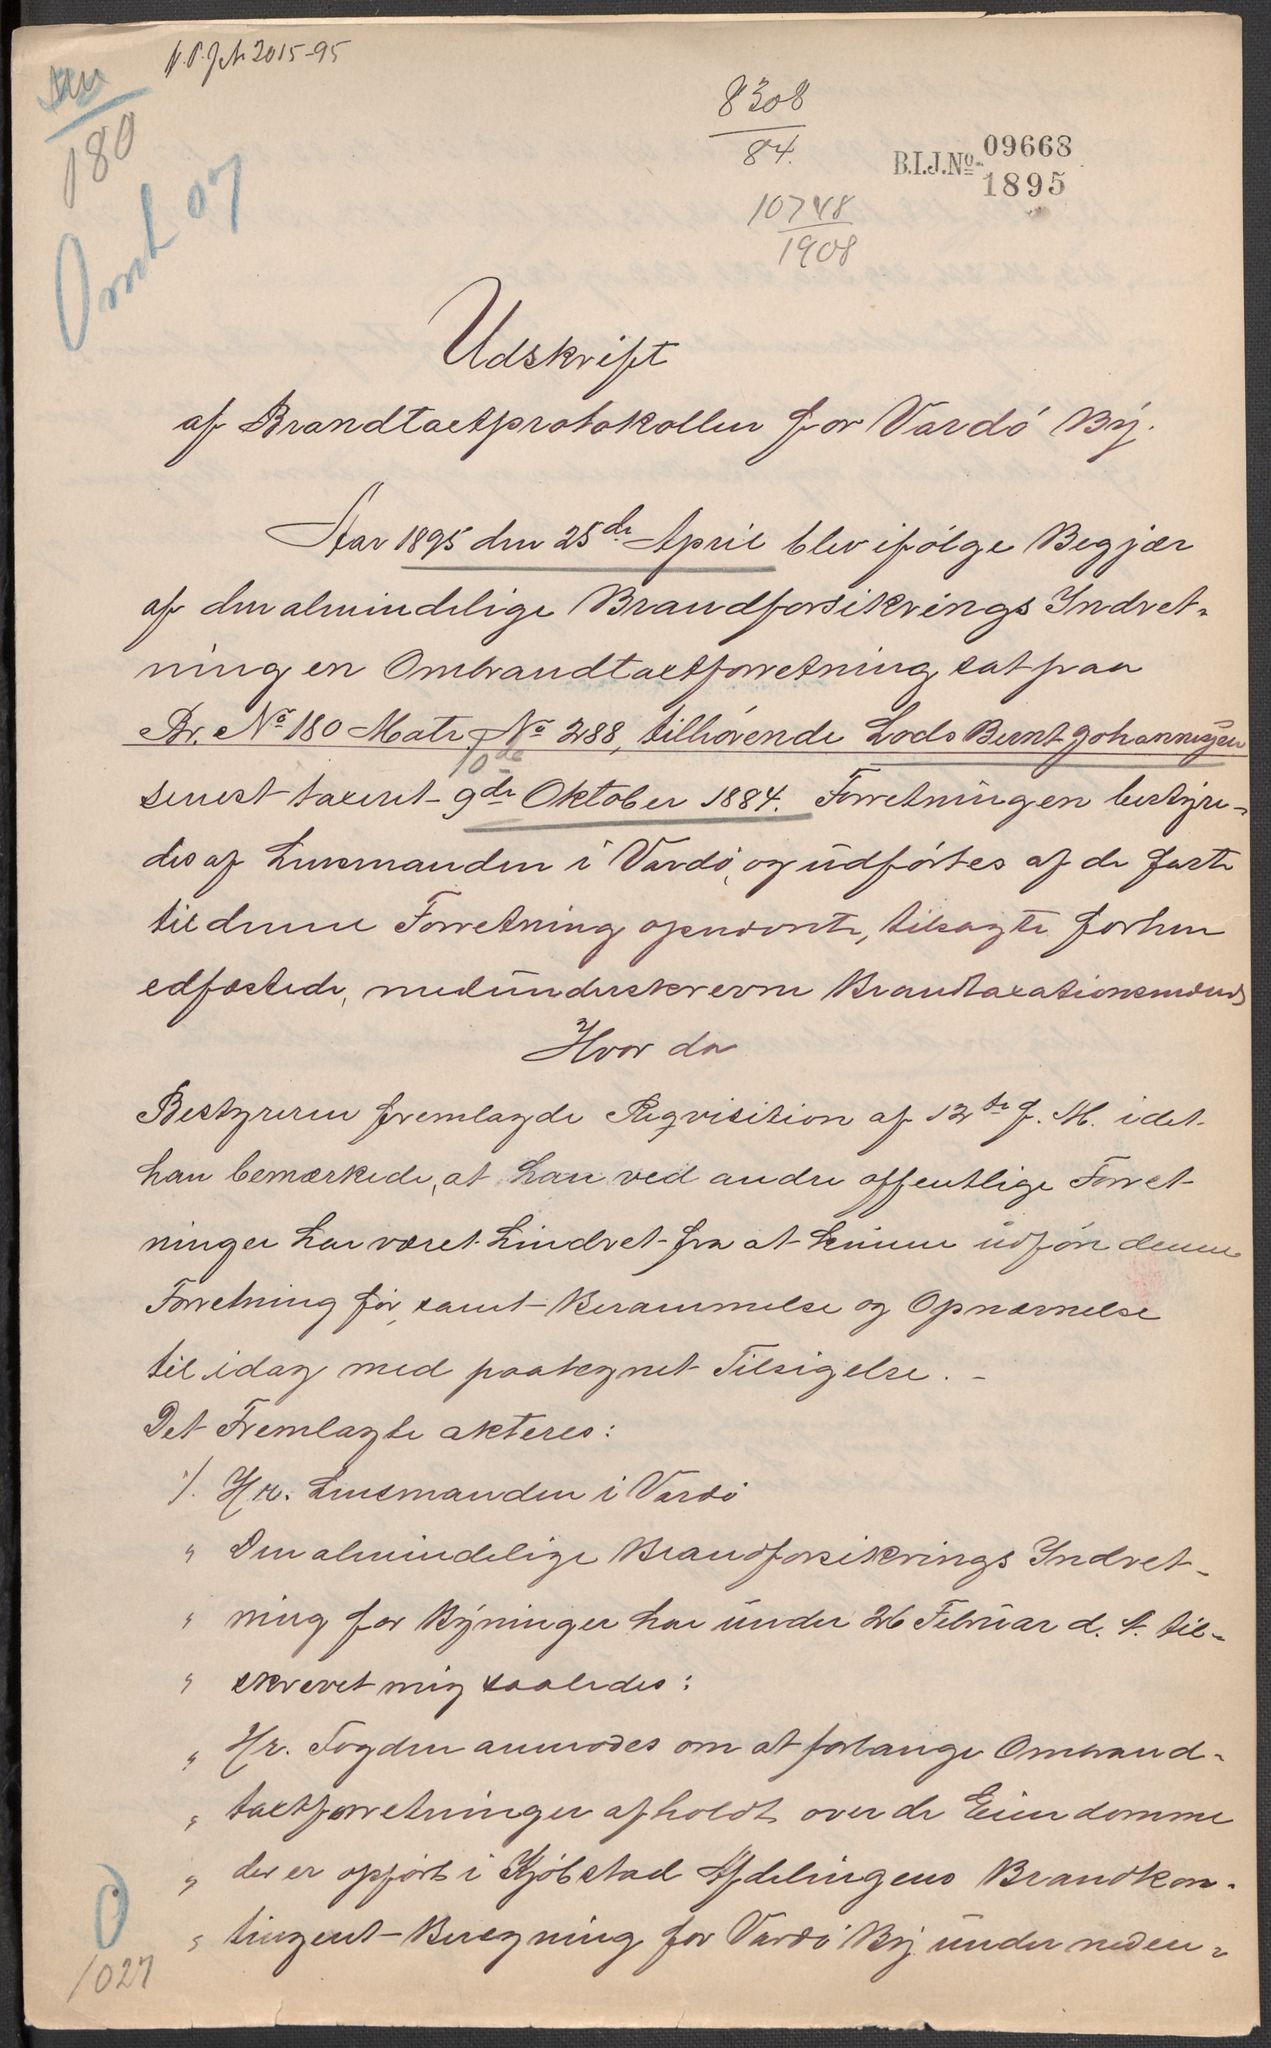 N.P. Jct. 2015-95
180
Omt 07
8308
84.
B.I.J.No. 09668
1895
10748
1908
Udskrift
af Brandtaxtprotokollen for Vardö By.
Aar 1895 den 25de April blev ifölge Begjær
af den almindelige Brandforsikrings Indret-
ning en Ombrandtaxtforretning sat paa
Br. No 180 Matr. No 288, tilhörende Lods Bernt Johannesen
10de
senest taxeret 9de Oktober 1884. Forretningen bestyre-
des af Lensmanden i Vardö, og udförtes af de faste
til denne Forretning opnævnte, tilsagte forhen
edfæstede, medunderskrevne Brandtaxationsmænd
Hvor da
Bestyreren fremlagde Reqvisition af 12te f. M. idet
han bemærkede, at han ved andre offentlige Forret-
ninger har været hindret fra at kunne udföre denne
Forretning för, samt Berammelse og Opnævnelse
til idag med paategnet Tilsigelse. -
Det Fremlagte akteres:
·/. Hr. Lensmanden i Vardö
" Den almindelige Brandforsikrings Indret-
" ning for Bygninger har under 26 Februar d. A. til-
" skrevet mig saaledes:
" Hr. Fogden anmodes om at forlange Ombrand-
" taxtforretninger afholdt over de Eiendomme
" der er opfört i Kjöbstad Afdelingens Brandkon-
" tingent-Beregning for Vardö By under neden-
1027